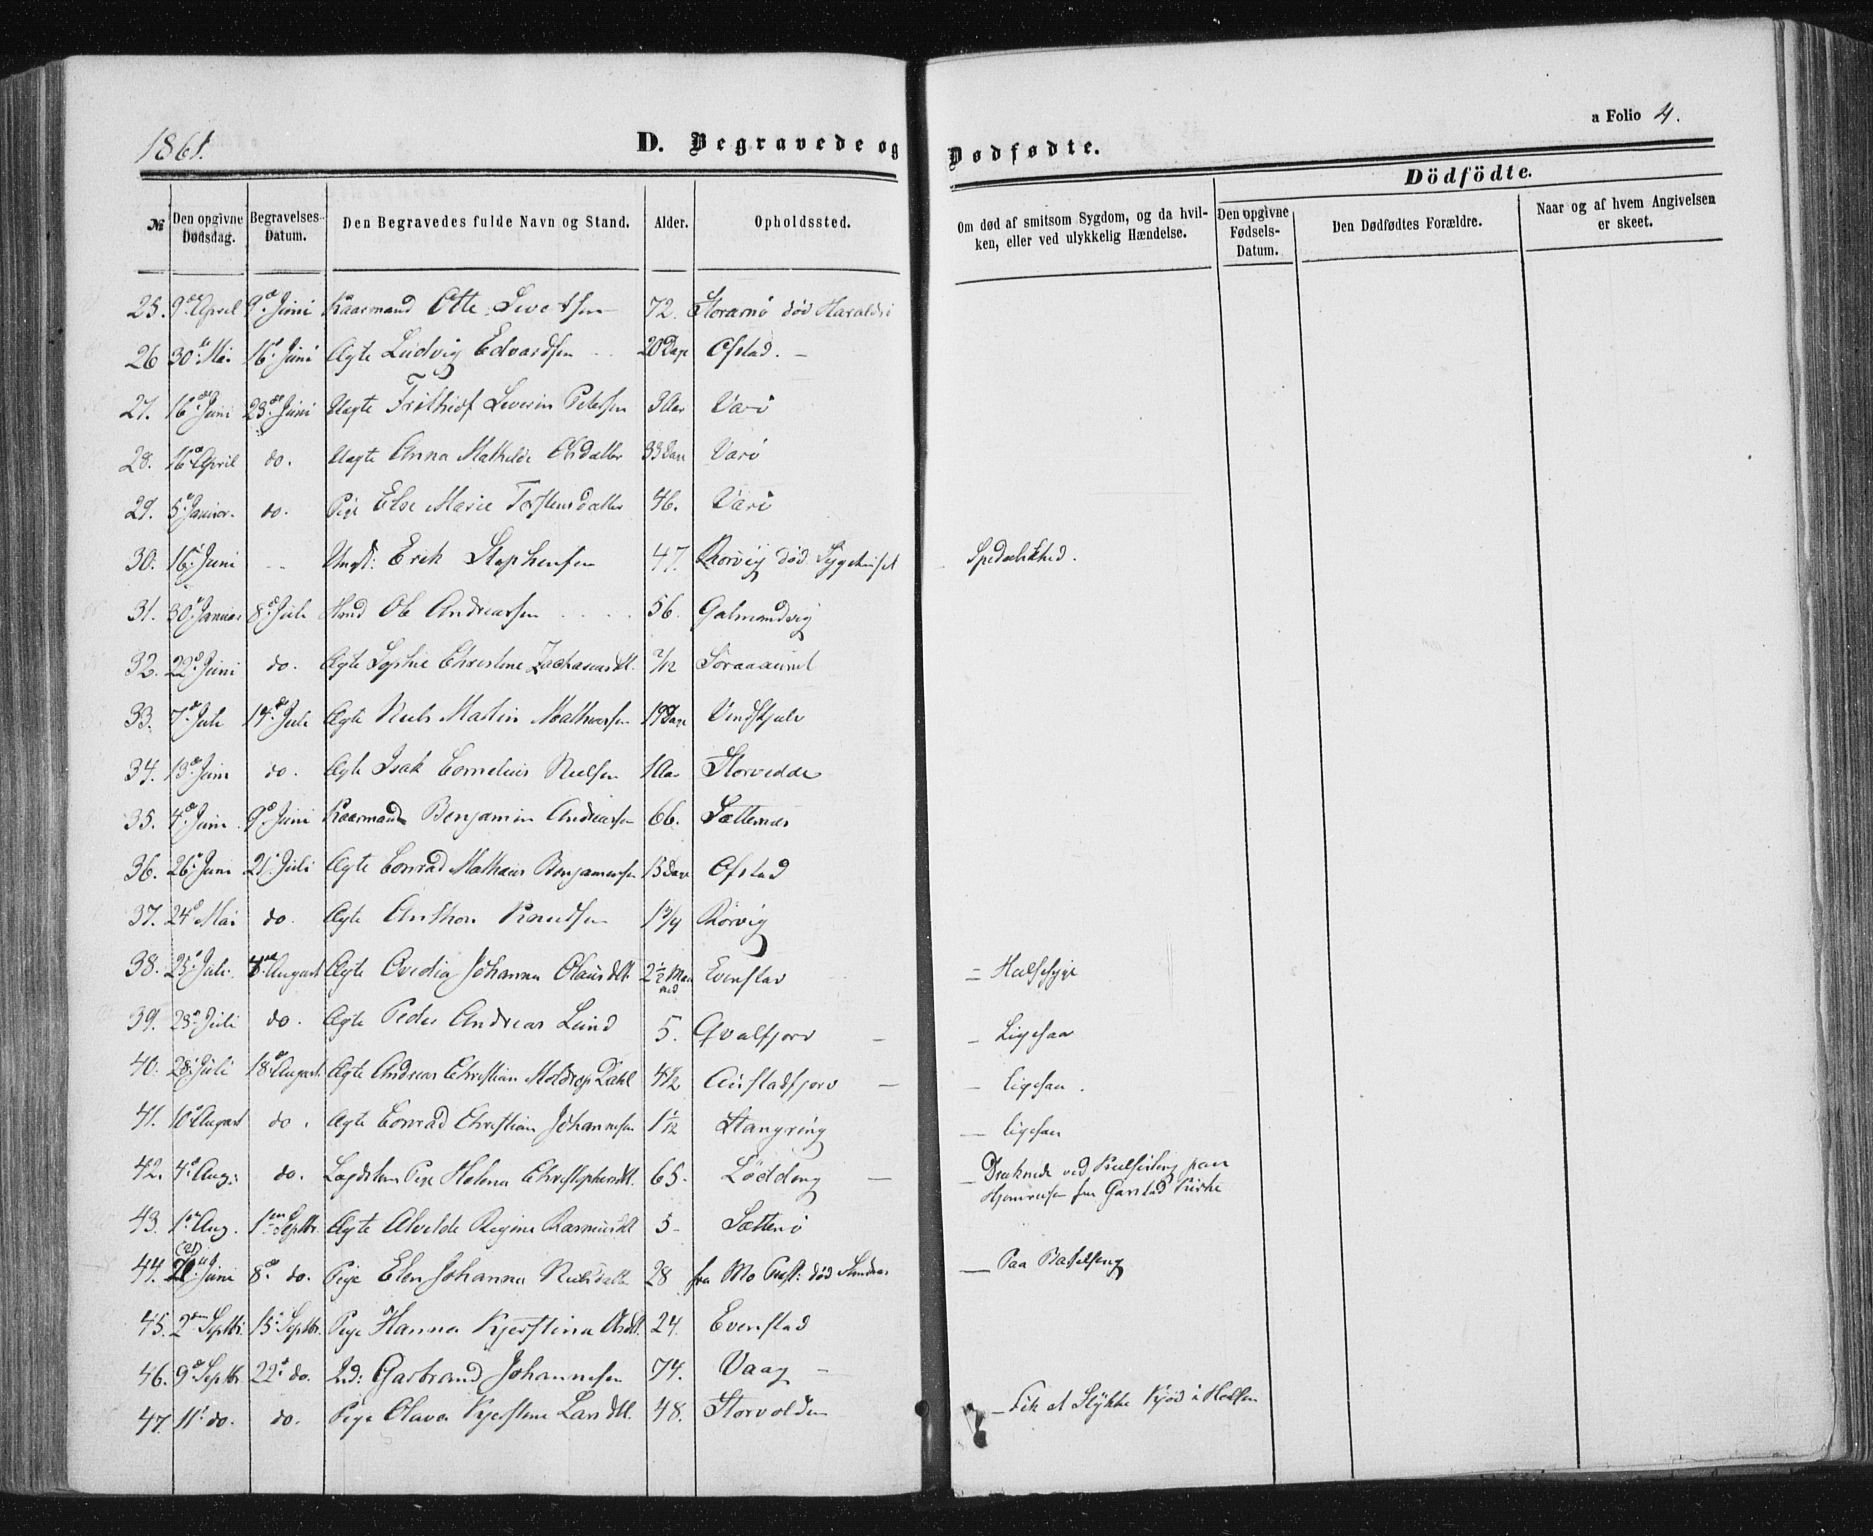 1861.
D. Begravede og Dødfødte.
a Folio 4.
Dödfödte.
№ Den opgivne Dødsdag. Begravelses-Datum. Den Begravedes fulde Navn og Stand. Alder. Opholdssted. Om død af smitsom Sygdom, og da hvilken, eller ved ulykkelig Hændelse. Den opgivne Fødsels-Datum. Den Dødfødtes Forældre. Naar og af hvem Angivelsen er skeet.
25. 9de April 9de Juni Kaarmand Otte Sivertsen 72. død
26 30te Mai 16de Juni Ægte Ludvig Edvardsen 20 Dage Ofstad.
27. 16de Juni 23de Juni Uægte Frithiof Severin Petersen 3 Aar Varö
28. 16de April do. Uægte Anna Mathilde Olsdatter 33 Dage Varö
29. 5te Januar. do. Pige Else Marie Torstensdatter 46. Varö
30. 16de Juni Ungk: Erek Stephensen 47. Rörvig død Sygehuset Spedalskhed.
31. 30te Januar 8de Juli Mand Ole Andreassen 56. Galmandvig
32. 22de Juni do. Ægte Sophie Christine Zachariasdt. 2/12
33. 7de Juli 14de Juli Ægte Niels Martin Mathiassen 19 Dage
34. 13de Juni do. Ægte Isak Cornelius Nielsen 1 Aar
35. 4de Juni 9de Juni Kaarmand Benjamin Andreassen 66. Sætternæs
36. 26de Juni 21de Juli Ægte Conrad Mathæus Benjaminsen 15 Dage Ofstad
37. 24de Mai do. Ægte Anthon Knudsen 1 3/4 Rörvig
38. 25de Juli. 4de August Ægte Ovedia Johanna Olausdt. 2 1/2 Maaned Evenstad = Halsesyge
39. 23de Juli do. Ægte Peder Andreas Lund 5. Qvalfjord - Ligesaa
40. 28de Juli 18de August Ægte Andreas Christian Moldrop Dahl 4 1/2 Austadfjord - Ligesaa.
41. 10de August do. Ægte Conrad Christian Johannesen 1 1/12 - ligesaa
42. 4de Aug: do. Lagdslem Pige Helena Christophersdt. 65. Lödding - Druknede ved paa
Hjemreisen fra Garstad Kirke
43. 1ste Aug. 1ste Septbr. Ægte Alvilde Regine Rasmusdt 5- Sætterö
44. Juni 8de do. Pige Elen Johanna Nielsdatter 28 fra Mo Præst: død - Paa Barselseng
45. 2den Septbr. 15de Septbr. Pige Hanna Kjerstina Olsdt. 24. Evenstad
46. 9de Septbr. 22de do. Ind: Garbrand Johannesen 74. Vaag -
47. 11te do. do. Pige Olava Kjerstine Larsdt. 48. Storvolden - Fik et Stykke Kjød i Halsen